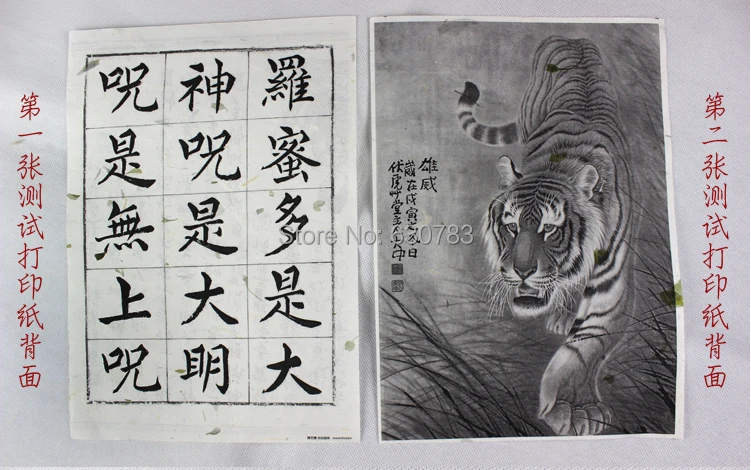 第一张测试打印纸背面
羅蜜多是大
神呪是大明
呪是無上呪
雄威
歲在戊寅之冬日
伏虎艸堂主人
第二张测试打印纸背面
Store No: